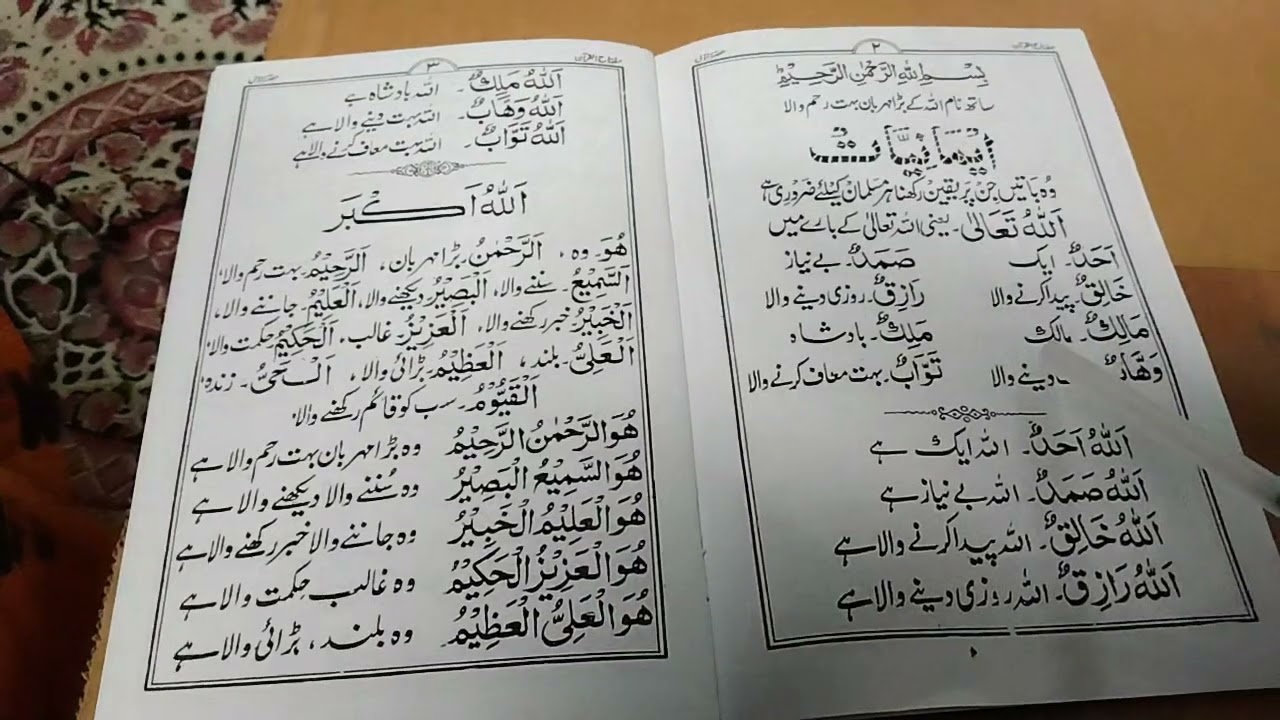 ۲
بِسْمِ اللهِ الرَّحْمٰنِ الرَّحِيْمِ
ساتھ نام اللہ کے بڑا مہربان بہت رحم والا
ایمانیات
وہ باتیں جن پر یقین رکھنا ہر مسلمان کیلئے ضروری ہے
اَللهُ تَعَالٰى۔ یعنی اللہ تعالیٰ کے بارے میں
اَحَدٌ۔ ایک صَمَدٌ۔ بے نیاز
خَالِقٌ۔ پیدا کرنے والا رَازِقٌ۔ روزی دینے والا
مَالِكٌ۔ مالک مَلِكٌ۔ بادشاہ
وَهَّابٌ۔ دینے والا تَوَّابٌ۔ بہت معاف کرنے والا
اَللهُ اَحَدٌ۔ اللہ ایک ہے
اَللهُ صَمَدٌ۔ اللہ بے نیاز ہے
اَللهُ خَالِقٌ۔ اللہ پیدا کرنے والا ہے
اَللهُ رَازِقٌ۔ اللہ روزی دینے والا ہے
۳
اَللهُ مَلِكٌ۔ اللہ بادشاہ ہے
اَللهُ وَهَّابٌ۔ اللہ بہت دینے والا ہے
اَللهُ تَوَّابٌ۔ اللہ بہت معاف کرنے والا ہے
اَللهُ اَكْبَر
هُوَ۔ وہ، اَلرَّحْمٰنُ۔ بڑا مہربان، اَلرَّحِيْمُ۔ بہت رحم والا،
اَلسَّمِيْعُ۔ سننے والا، اَلْبَصِيْرُ۔ دیکھنے والا، اَلْعَلِيْمُ۔ جاننے والا،
اَلْخَبِيْرُ۔ خبر رکھنے والا، اَلْعَزِيْزُ۔ غالب، اَلْحَكِيْمُ۔ حکمت والا،
اَلْعَلِيُّ۔ بلند، اَلْعَظِيْمُ۔ بڑائی والا، اَلْحَيُّ۔ زندہ،
اَلْقَيُّوْمُ۔ سب کو قائم رکھنے والا،
هُوَ الرَّحْمٰنُ الرَّحِيْمُ وہ بڑا مہربان بہت رحم والا ہے
هُوَ السَّمِيْعُ الْبَصِيْرُ وہ سُننے والا دیکھنے والا ہے
هُوَ الْعَلِيْمُ الْخَبِيْرُ وہ جاننے والا خبر رکھنے والا ہے
هُوَ الْعَزِيْزُ الْحَكِيْمُ وہ غالب حِکمت والا ہے
هُوَ الْعَلِيُّ الْعَظِيْمُ وہ بلند، بڑائی والا ہے